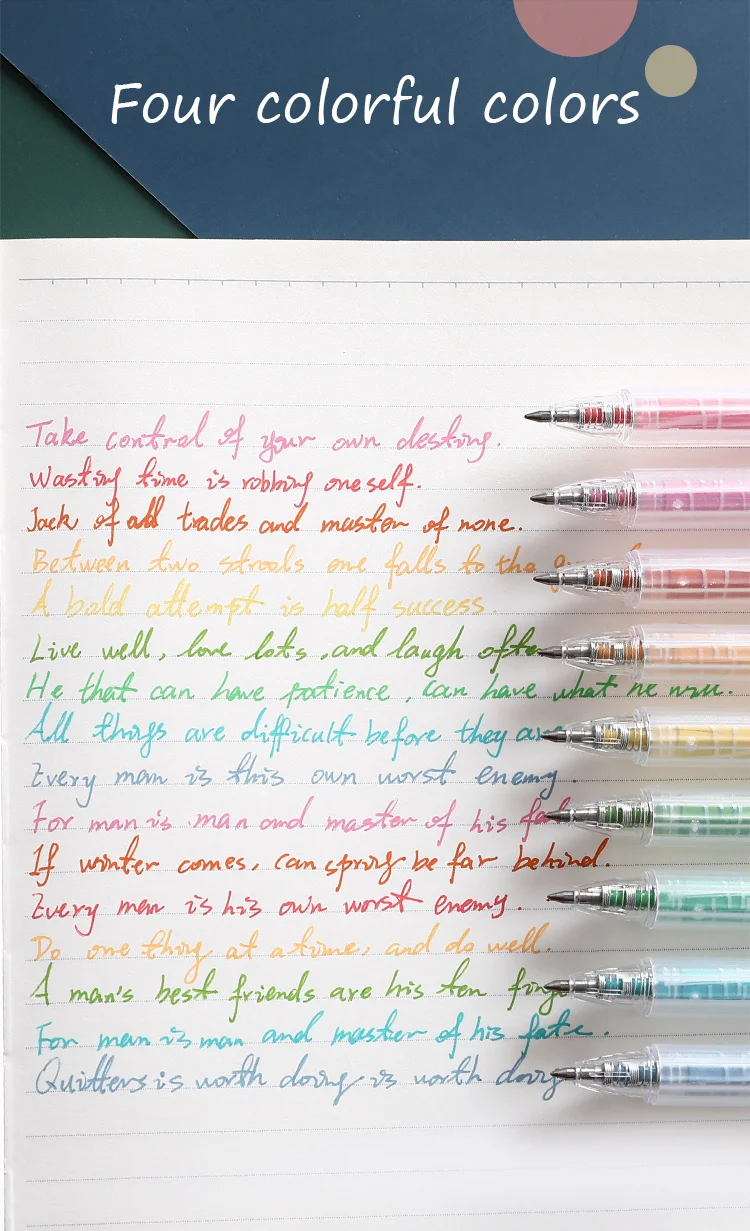 Four colorful colors
Take control of your own desting.
Wasting time is robbing oneself.
Jack of all trades and master of none.
Between two strools one falls to the
A bald attempt is half success.
Live well, love lots, and laugh ofte
He that can have patience, can have what he
All things are difficult before they are
Every man is this own worst enemy.
For man is man and master of his
If winter comes, can spring be far behind.
Every man is his own worst enemy.
Do one thing at a time, and do well.
A man's best friends are his ten
For man is man and master of his fate.
Quitters is worth doing is worth doing